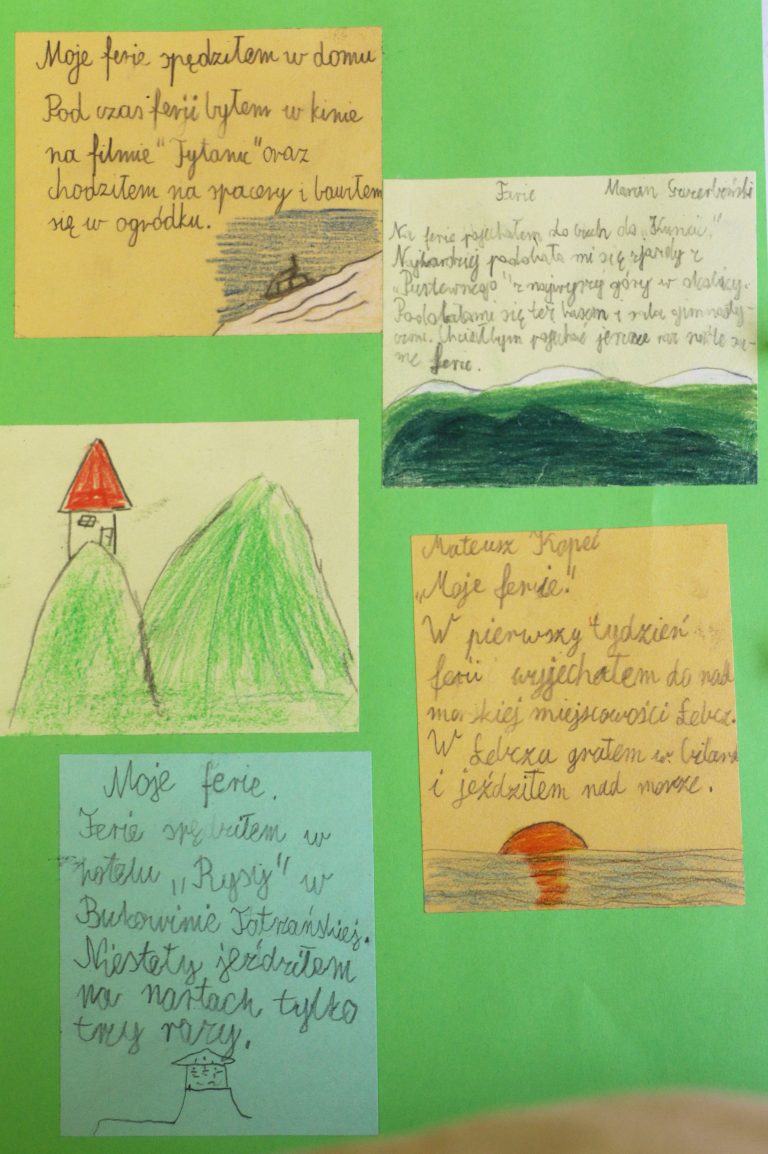 Moje ferie spędziłem w domu
Pod czas ferji byłem w kinie
na filmie "Tytanic" oraz
chodziłem na spacery i bawiłem
się w ogródku.
Ferie Marcin
Na ferie pojechałem do
Najbardziej podobała mi się zjazdy z
z najwyższy góry w okolicy.
Podobałami się też basen i sala gimnasty-
czna. Chciałbym pojechać jeszcze raz na te sa-
me ferie.
Mateusz Kopeć
"Moje ferie."
W pierwszy tydzień
ferii wyjechałem do nad
morskiej miejscowości Łebcz.
W Łebczu grałem w
i jeździłem nad morze.
Moje ferie.
Ferie spędziłem w
hotelu „Rysy" w
Bukowinie Tatrzańskiej.
Niestety jeździłem
na nartach tylko
trzy razy.